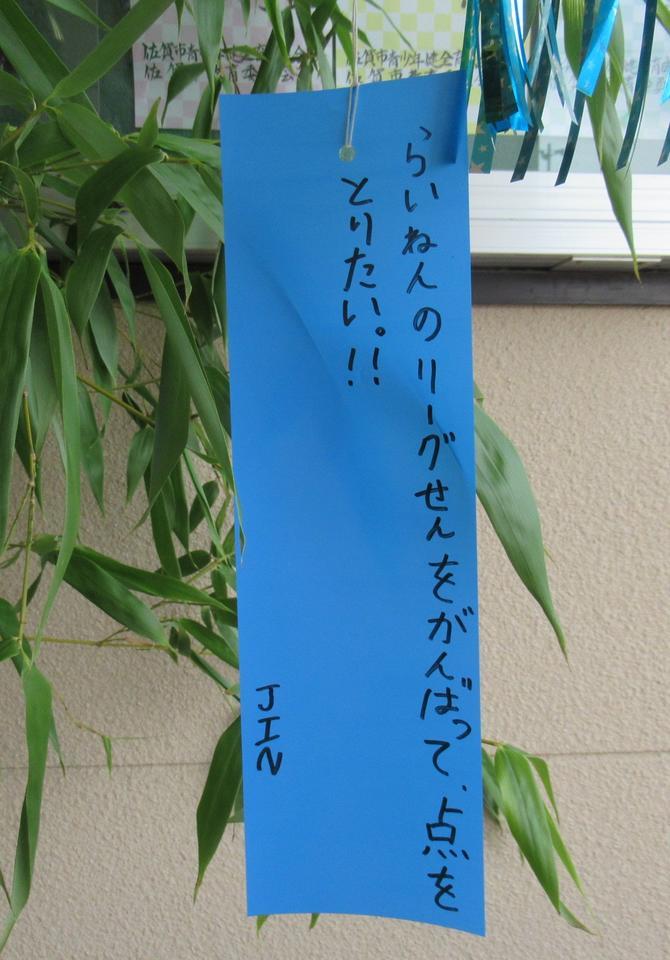 らいねんのリーグせんをがんばって、点を
とりたい。!!
JIN
佐賀市
佐賀市青少年健全育
佐賀市